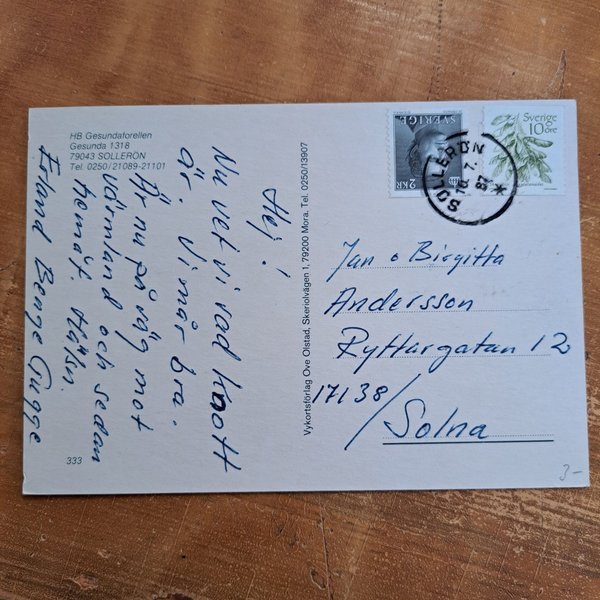 HB Gesundaforellen
Gesunda 1318
79043 SOLLERÖN
Tel. 0250/21089-21101
Hej!
Nu vet vi vad knott
är. Vi mår bra.
Är nu på väg mot
Värmland och sedan
hemåt. Hälsn
Erland Benge Gugge
333
Vykortsförlag Ove Olstad, Skeriolvägen 1, 79200 Mora. Tel. 0250/13907
SVERIGE
2 KR
Sverige
10 öre
SOLLERÖN
87
Jan o Birgitta
Andersson
Ryttargatan 12
17138/
Solna
3-